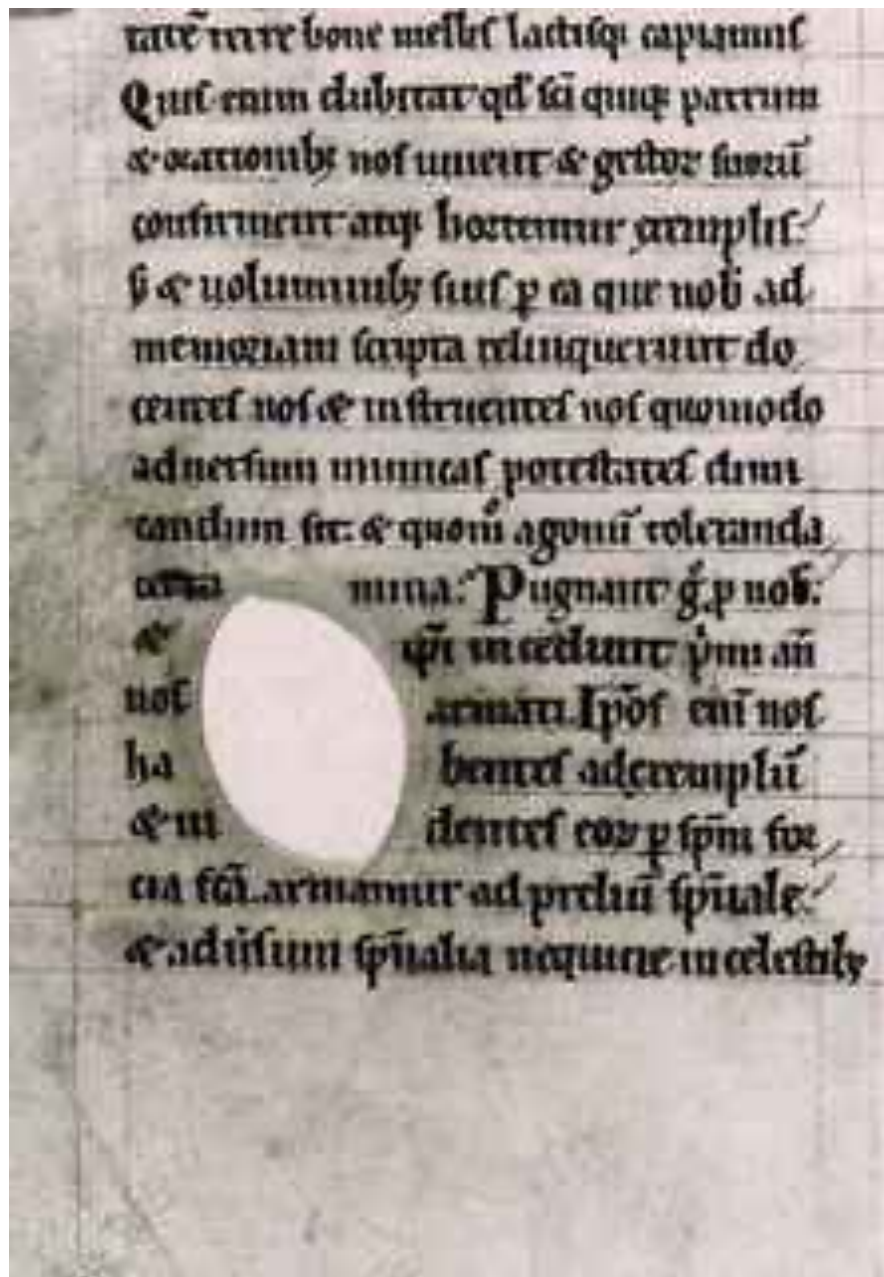 tatē terre bone mellis lactisq; capiamus
Quis enim dubitat qd̄ sc̄i quiq; patrum
& orationib; nos iuuent & gestoꝝ suoꝝ
confirment atq; hortentur exemplis:
s; & uoluminib; suis ꝑ ea que nob̄ ad
memoriam scripta relinquerunt do
centes nos & instruentes nos quomodo
aduersum inimicas potestates dimi
candum sit: & quom̊ agonū toleranda
certa mina: Pugnant ġ ꝑ nob̄:
& incedunt p̄mi an̄
nos armati. Ip̄os eni nos
ha bentes ad exemplū
& ui dentes eoꝝ ꝑ sp̄m for
cia fc̄a. armamur ad preliū sp̄uale:
& adūsum sp̄ualia nequicie in celestib;